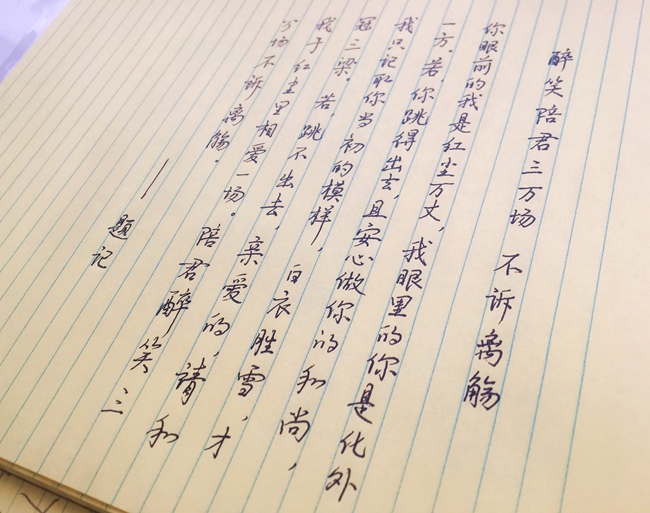 醉笑陪君三万场 不诉离觞
你眼前的我是红尘万丈,我眼里的你是化外
一方。若,你跳得出去,且安心做你的和尚,
我只记取你当初的模样,白衣胜雪,才
冠三梁。若,跳不出去,亲爱的,请和
我于红尘里相爱一场。陪君醉笑三
万场不诉离觞.
——题记